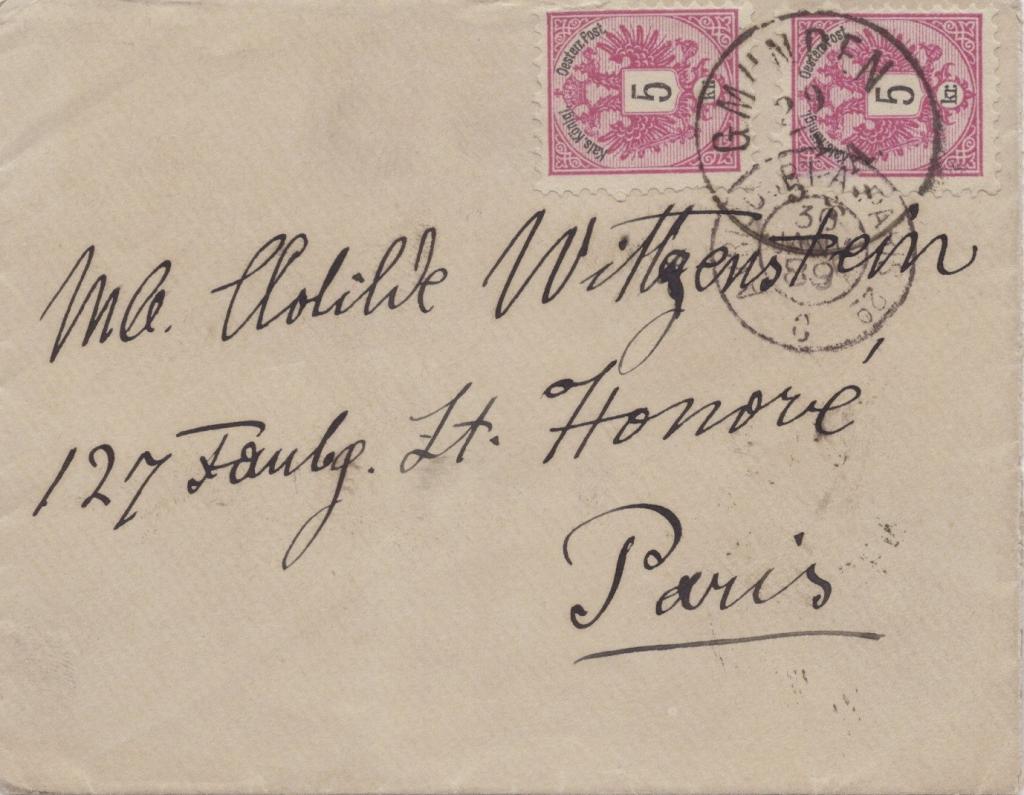 Oesterr. Post.
Kais. Königl.
5
kr.
Oesterr. Post.
Kais. Königl.
5
kr:
GMUNDEN
30
89
Mlle. Clotilde Wittgenstein
127 Faubg. St. Honoré,
Paris